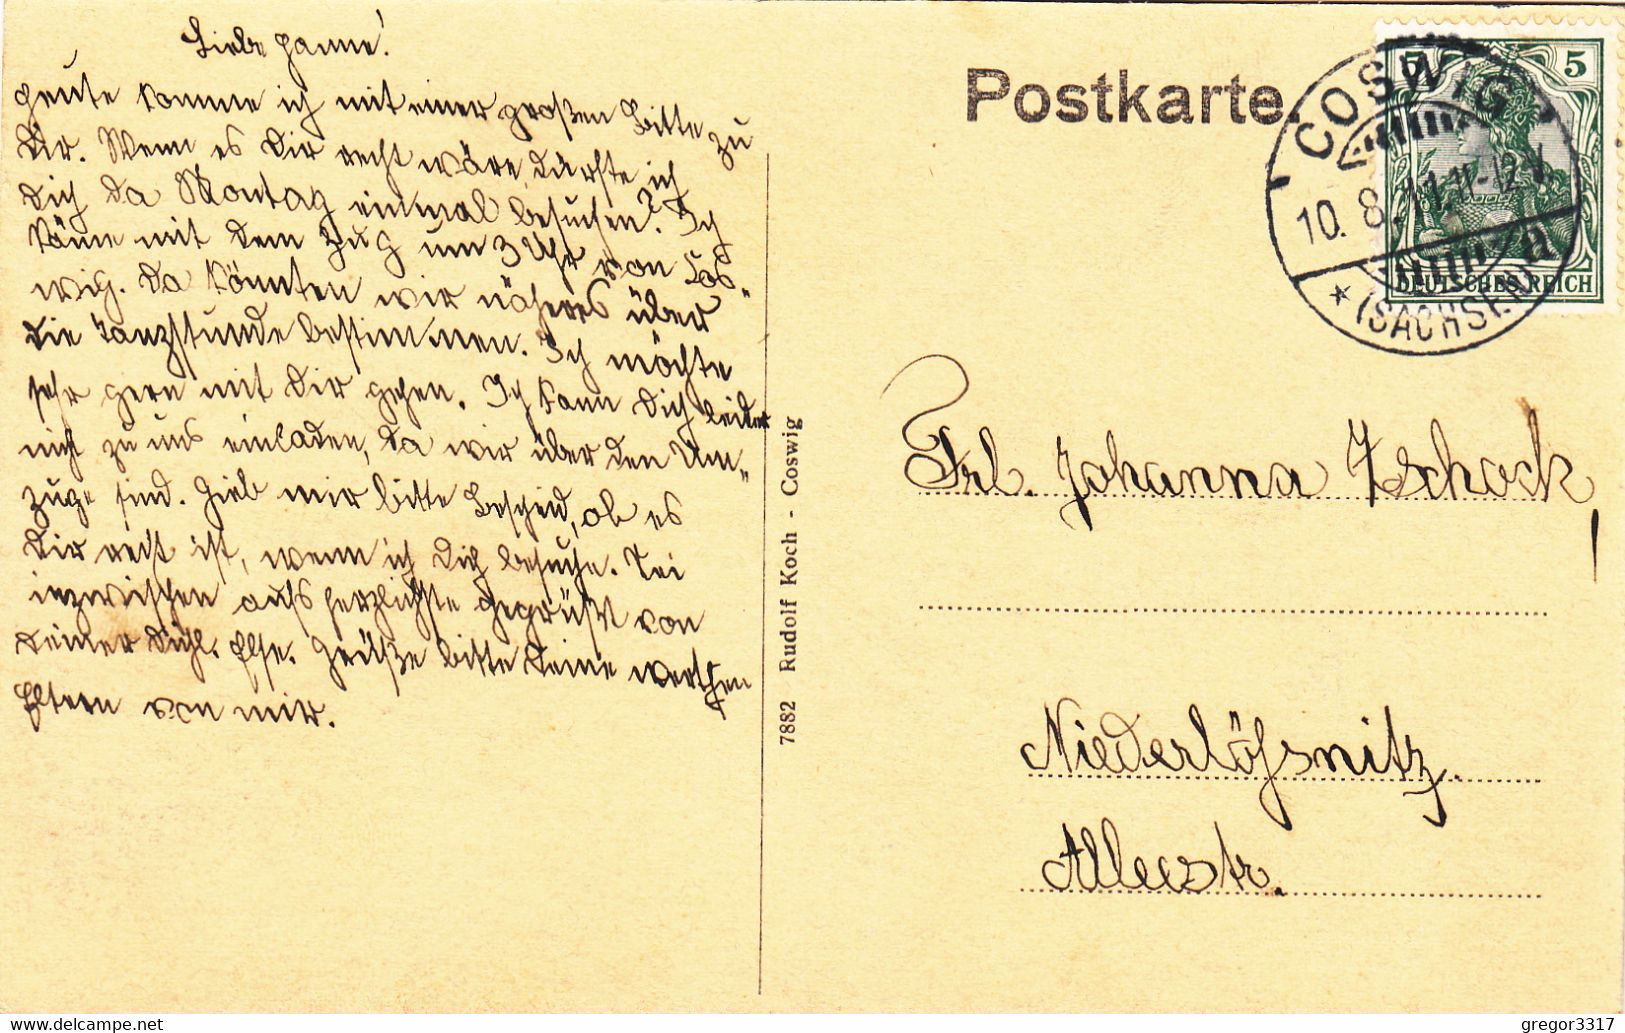 Liebe Hanne!
Heute komme ich mit einer großen Bitte zu
Dir. Wenn es Dir recht wäre, dürfte ich
Dich da Montag einmal besuchen? Ich
käme mit dem Zug um 3 Uhr von Cos-
wig. Da könnten wir näheres über
die Tanzstunde bestimmen. Ich möchte
sehr gern mit Dir gehen. Ich kann Dich leider
nicht zu uns einladen, da wir über den Um-
zuge sind. Gieb mir bitte Bescheid, ob es
Dir recht ist, wenn ich Dich besuche. Sei
inzwischen aufs herzlichste gegrüßt von
Deiner Else. Grüße bitte Deine werthen
Eltern von mir.
7882 Rudolf Koch - Coswig
Postkarte.
COSWIG
10. 8. 11. 11-12 V.
* (SACHSEN) a
5 5
DEUTSCHES REICH
Frl. Johanna Zschock!
Niederlößnitz.
Alleestr.
gregor3317